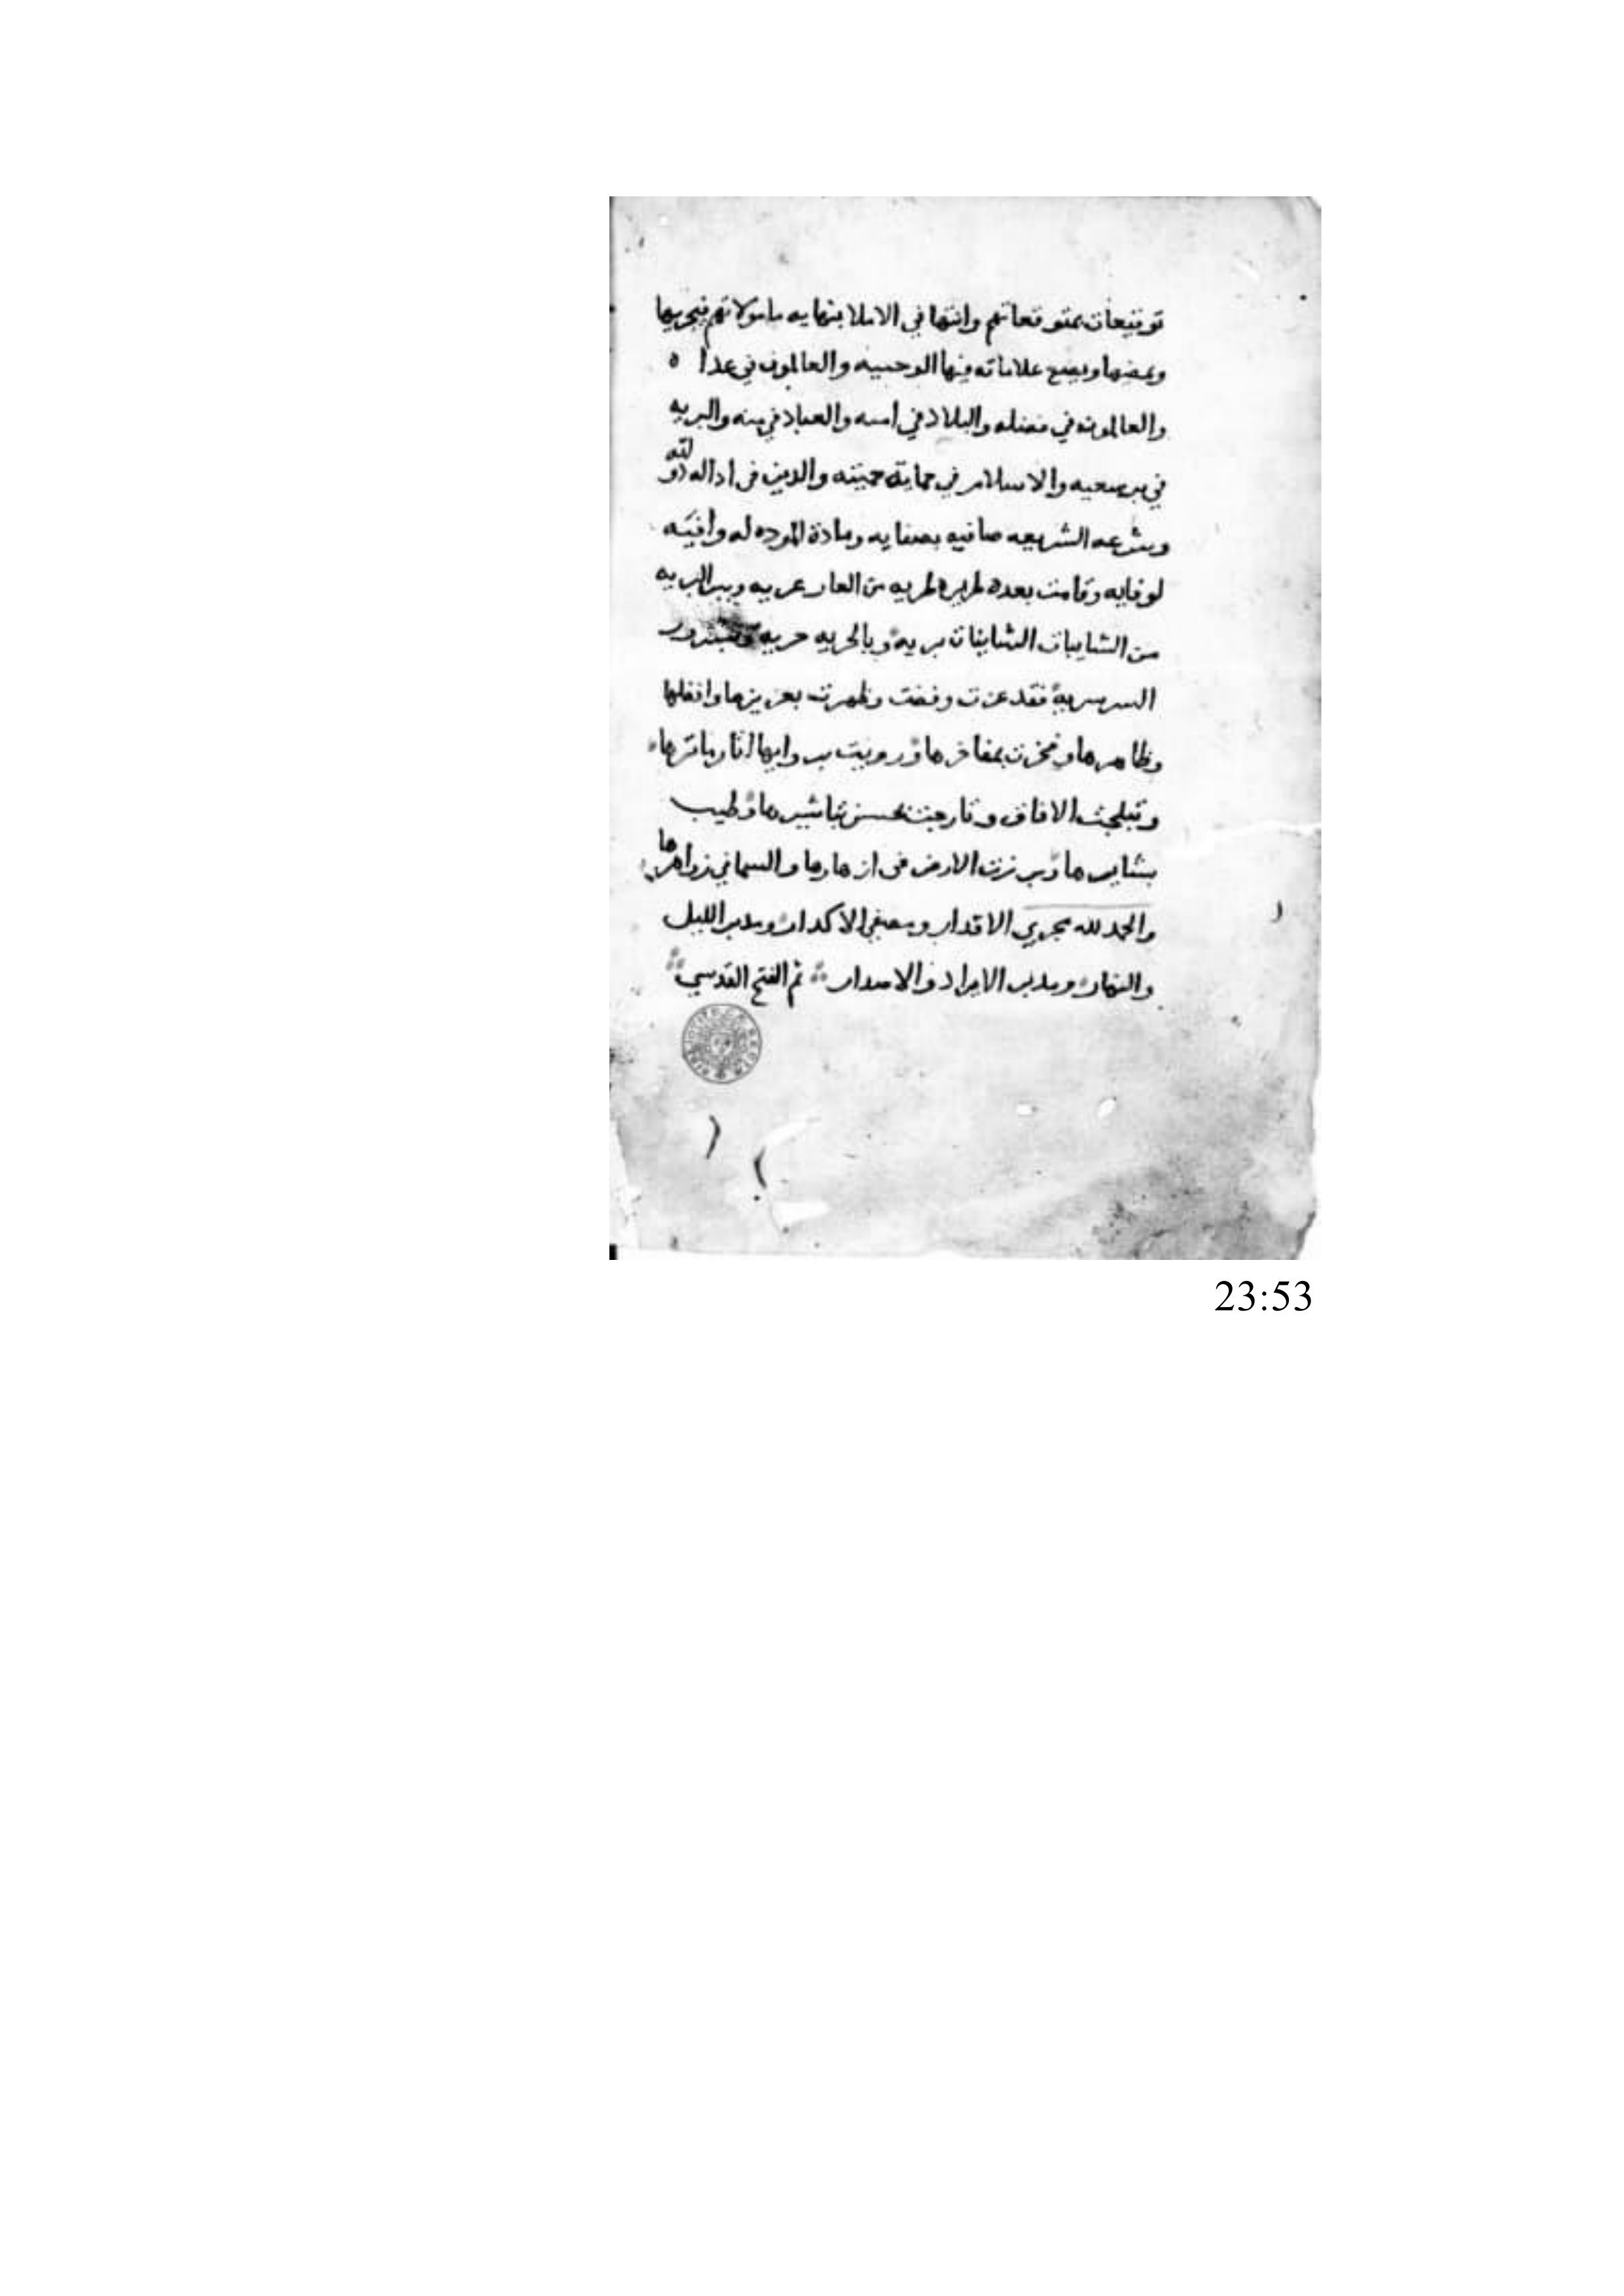 توقيعات بمتوقعاتهم وانتها في الاملا بنهايه مامولاتهم فيجريها
ويمضيها ويضع علاماته فيها الوحييه والعالمون في عدا ه
والعالمون في فضله والبلاد في امنه والعباد في منه والبريه
في بر سعيه والاسلام في حماية حميته والدين في اداله دولته
وشرعه الشريعه صافيه بصفايه ومادة الموده له وافيه
لوفايه وقامت بعده من العار عريه
من الشايبات الشاينات بريه وبالحريه حريه
فقد عزت وظهرت بعزيزها وافضلها
وظاهرها وفخرت بمفاخرها ورويت اثار ماثرها
وتبلجت الافاق وتارجت بحسن تباشيرها وطيب
بشايرها وبرزت الارض في ازهارها والسما في زواهرها
والحمد لله مجري الاقدار ومصفي الاكدار ومدبر الليل
والنهار ومدبر الايراد والاصدار تم الفتح القدسي
23:53